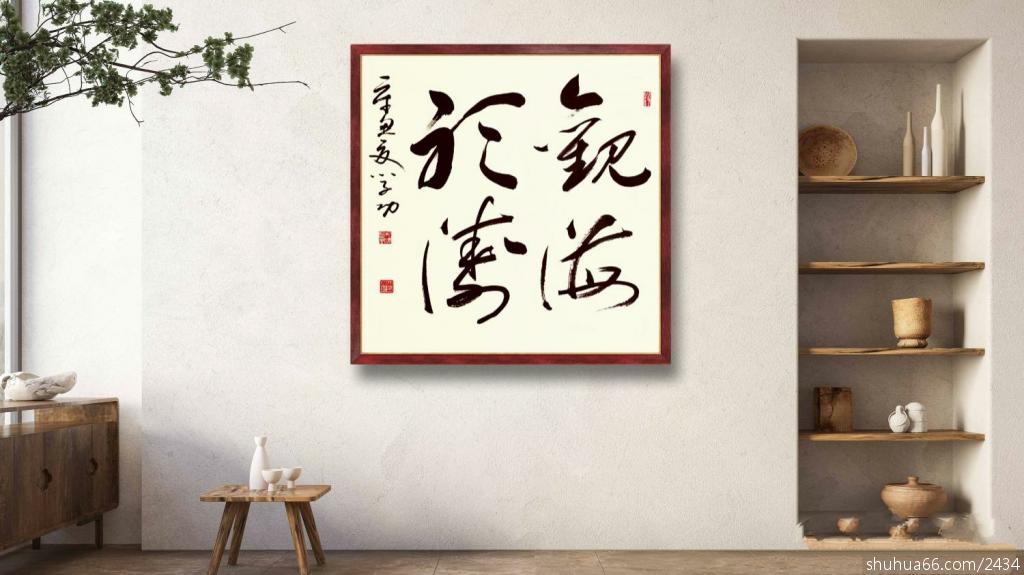 觀海
聽濤
辛丑夏學功
shuhua66.com/2434